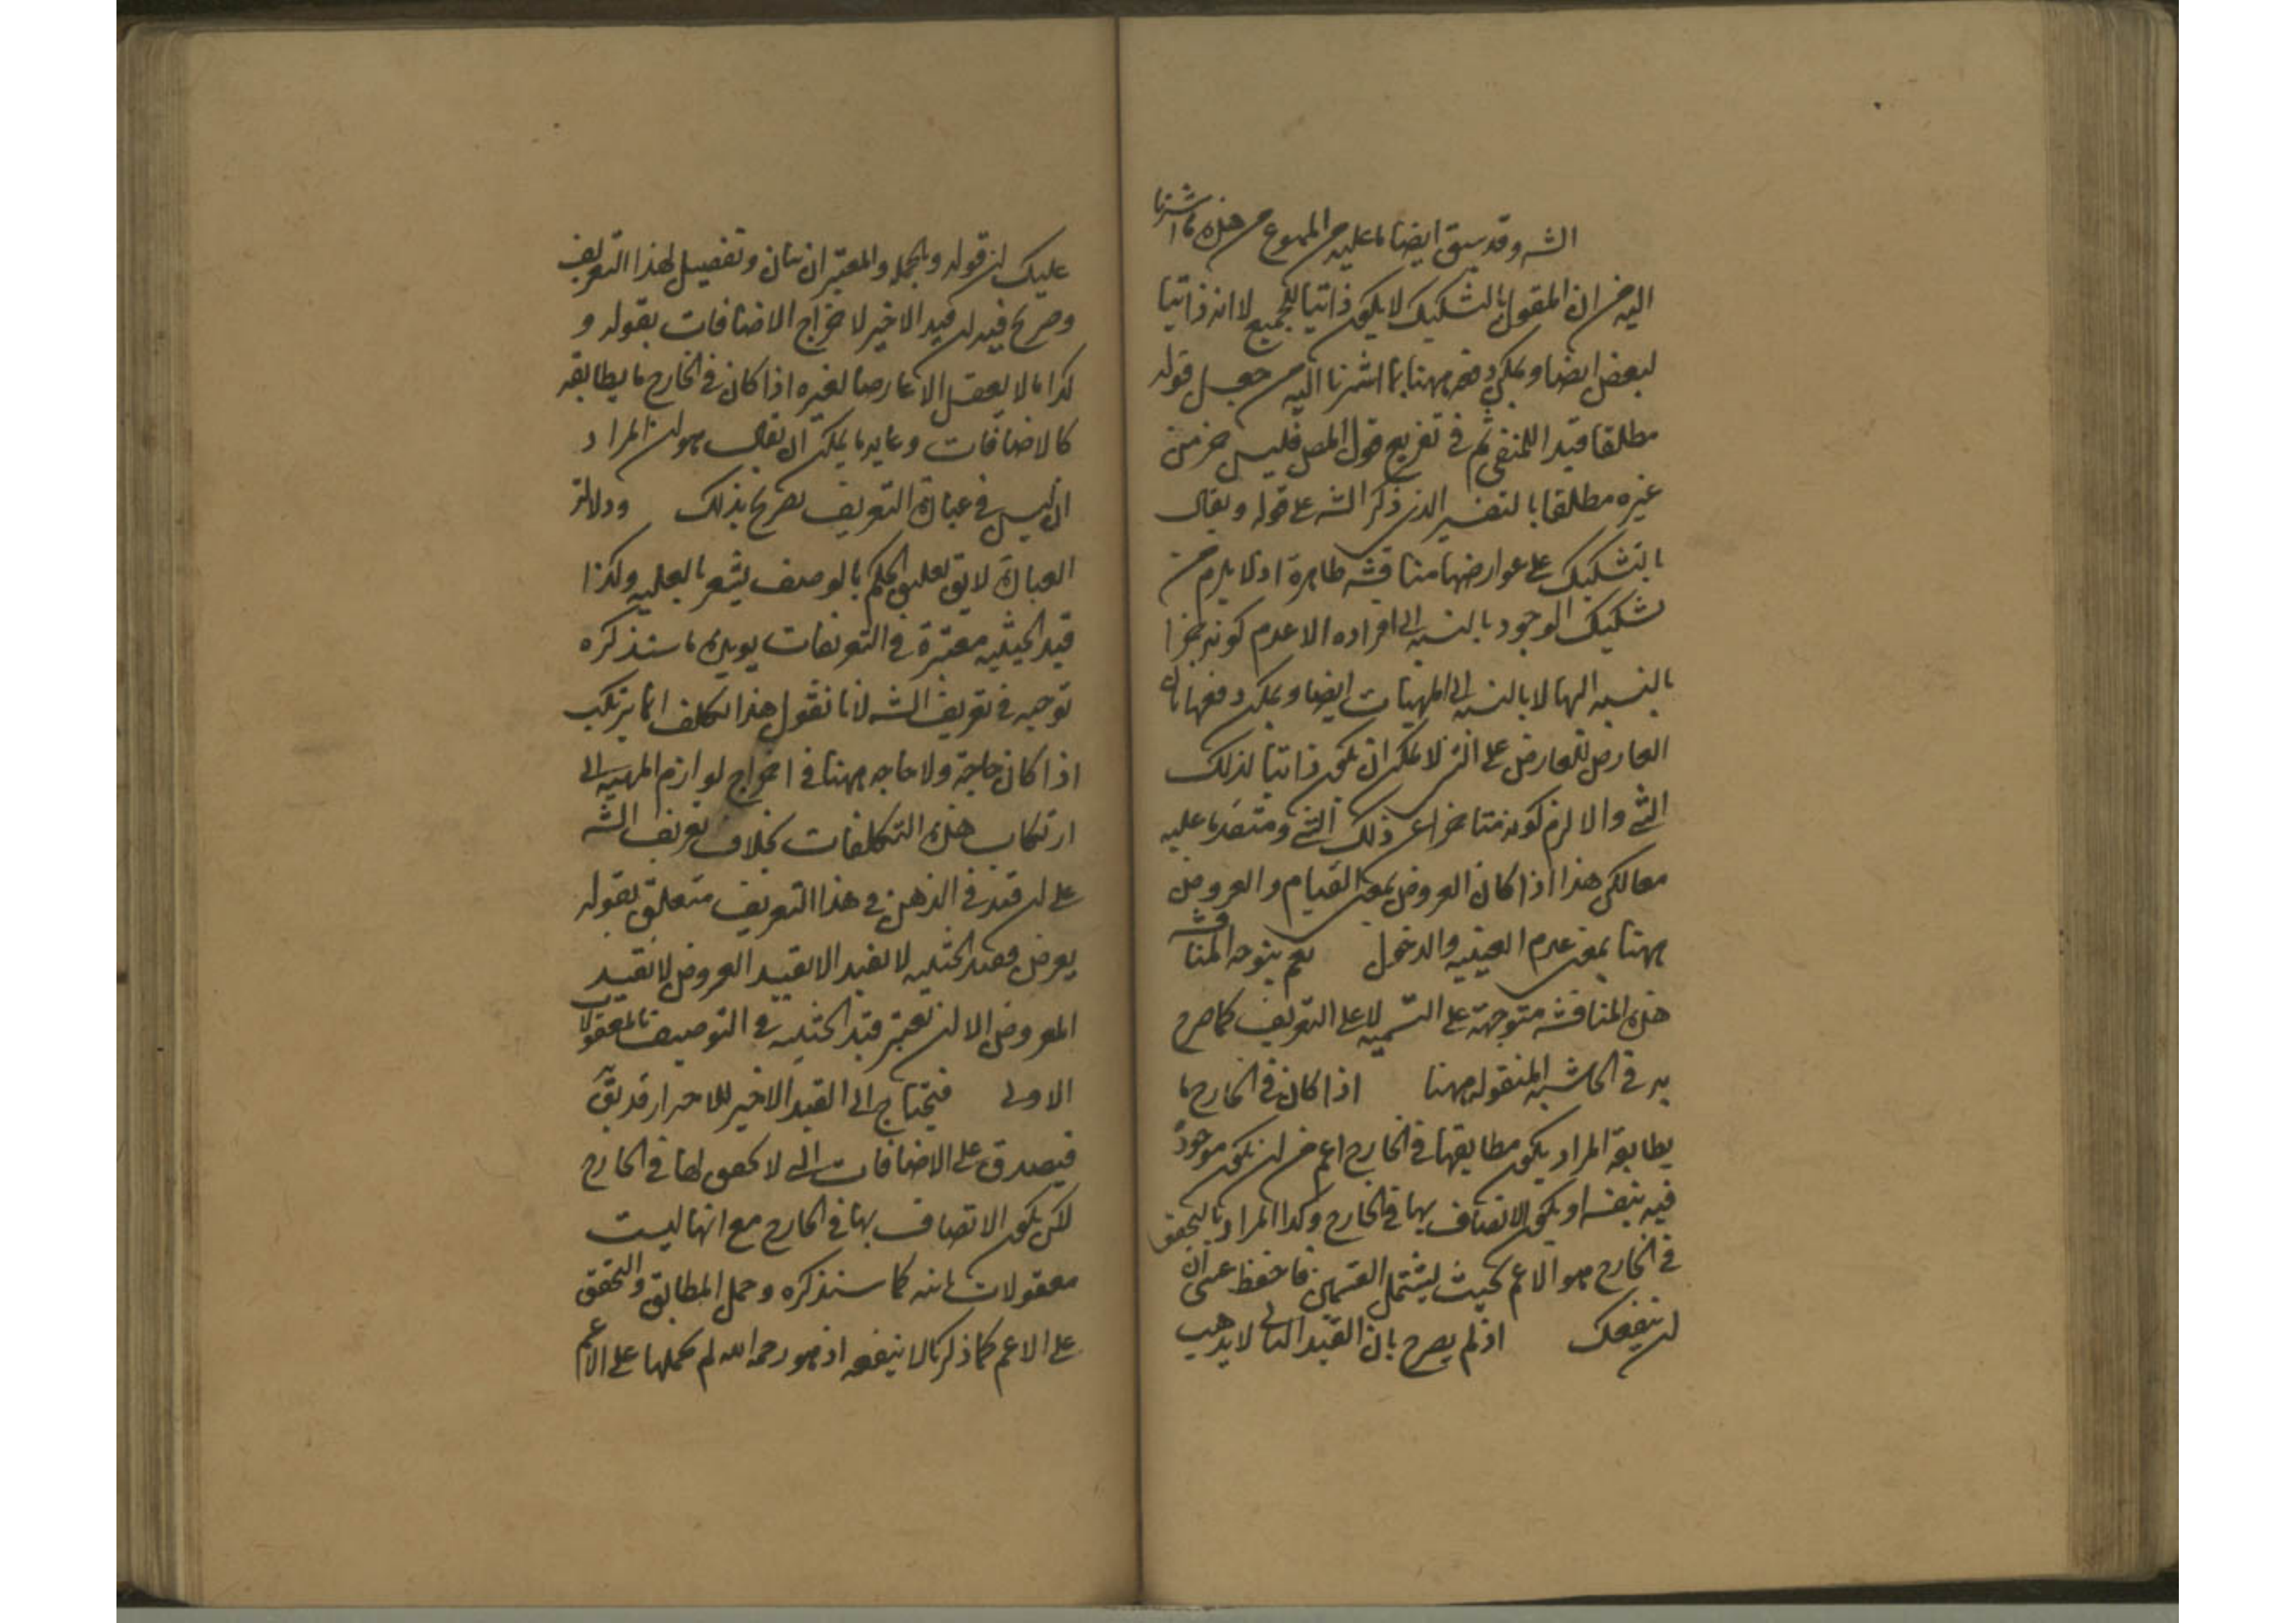 الشه وقد سبق ايضا ما عليه من الممنوع من هذه ما اشرنا
اليه من ان المقول بالتشكيك لا يكون ذاتيا للجميع لا انه ذاتيا
لبعض ايضا ويمكن دفعه بهنا بما اشرنا اليه من جعل قوله
مطلقا قيدا للمنفي ثم في تفريع قول المص فليس جزء من
غيره مطلقا بالتفسير الذي ذكر الشه على قوله ويقال
بالتشكيك على عوارضها مناقشه ظاهرة اذ لا يلزم من
تشكيك الوجود بالنسبه الى افراده الا عدم كونه جزا
بالنسبه الها لا بالنسبه الى المهيات ايضا ويمكن دفعها بان
العارض للعارض على الشي لا يمكن ان يكون ذاتيا لذلك
الشي والا لزم كونه متاخرا عن ذلك الشي ومتقدما عليه
معا لكن هذا اذا كان العروض بمعنى القيام والعروض
بهنا بمعنى عدم العينيه والدخول نعم يتوجه المناقشه
هذه المناقشه متوجهة على التسميه لا على التعريف كما صرح
به في الحاشيه المنقوله بهنا اذا كان في الخارج ما
يطابقه المراد يكون مطابقها في الخارج اعم من ان يكون موجودا
فيه بنفسه او يكون الاتصاف بها في الخارج وكذا المراد بالتحقق
في الخارج هو الاعم بحيث يشتمل القسمين فاحفظ عسى ان
ان ينفعك اذ لم يصرح بان القيد الثاني لا يذهب
عليك ان قوله وبالجمله والمعتبر ان بيان وتفصيل لهذا التعريف
وصرح فيه ان قيد الاخير لاخراج الاضافات بقوله و
كذا ما لا يعقل الا عارضا لغيره اذا كان في الخارج ما يطابقه
كالاضافات وغايه ما يمكن ان يقال هو ان المراد
ان ليس في عبارة التعريف تصريح بذلك ودلالة
العبارة لا يق تعليق الحكم بالوصف يشعر بالعليه ولهذا
قيد الحيثيه معتبرة في التعريفات يويده ما سنذكره
توجيه في تعريف الشه لانا نقول هذا التكلف انما يرتكب
اذا كان حاجة ولا حاجه بهنا في اخراج لوازم المهيه الى
ارتكاب هذه التكلفات بخلاف تعريف الشه
على ان قيد في الذهن في هذا التعريف متعلق بقوله
يعرض فقيد الحيثيه لا تفيد الا تقييد العروض لا تقييد
المعروض الا ان تعتبر قيد الحيثيه في التوصيف بالمعقولات
الاولى فيحتاج الى القيد الاخير للاحتراز قد يق
فيصدق على الاضافات التي لا تحقق لها في الخارج
لكن يكون الاتصاف بها في الخارج مع انها ليست
معقولات ثانيه كما سنذكره وحمل المطابق والتحقق
على الاعم كما ذكرنا لا ينفعه اذ هو رحمه الله لم يحملها على الاعم